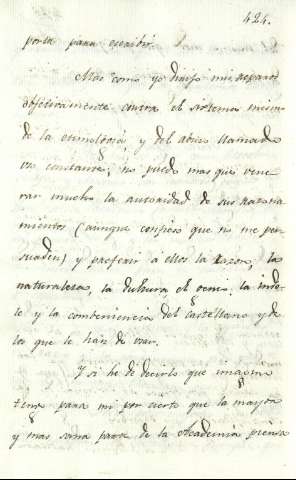 424.
porta para escribir.
Mas como yo dirijo mis reparos
objetivamente contra el sistema mismo
de la etimología, y del abuso llamado
uso constante; no puedo mas que vene
rar mucho la autoridad de sus razona
mientos (aunque confieso que no me per
suaden) y preferir a ellos la razon, la
naturaleza, la dulzura, el genio, la indo-
le y la combeniencia del castellano y de
los que le han de usar.
Y si he de decir lo que imagino
tengo para mi por cierto que la mayor
y mas sana parte de la Academia piensa